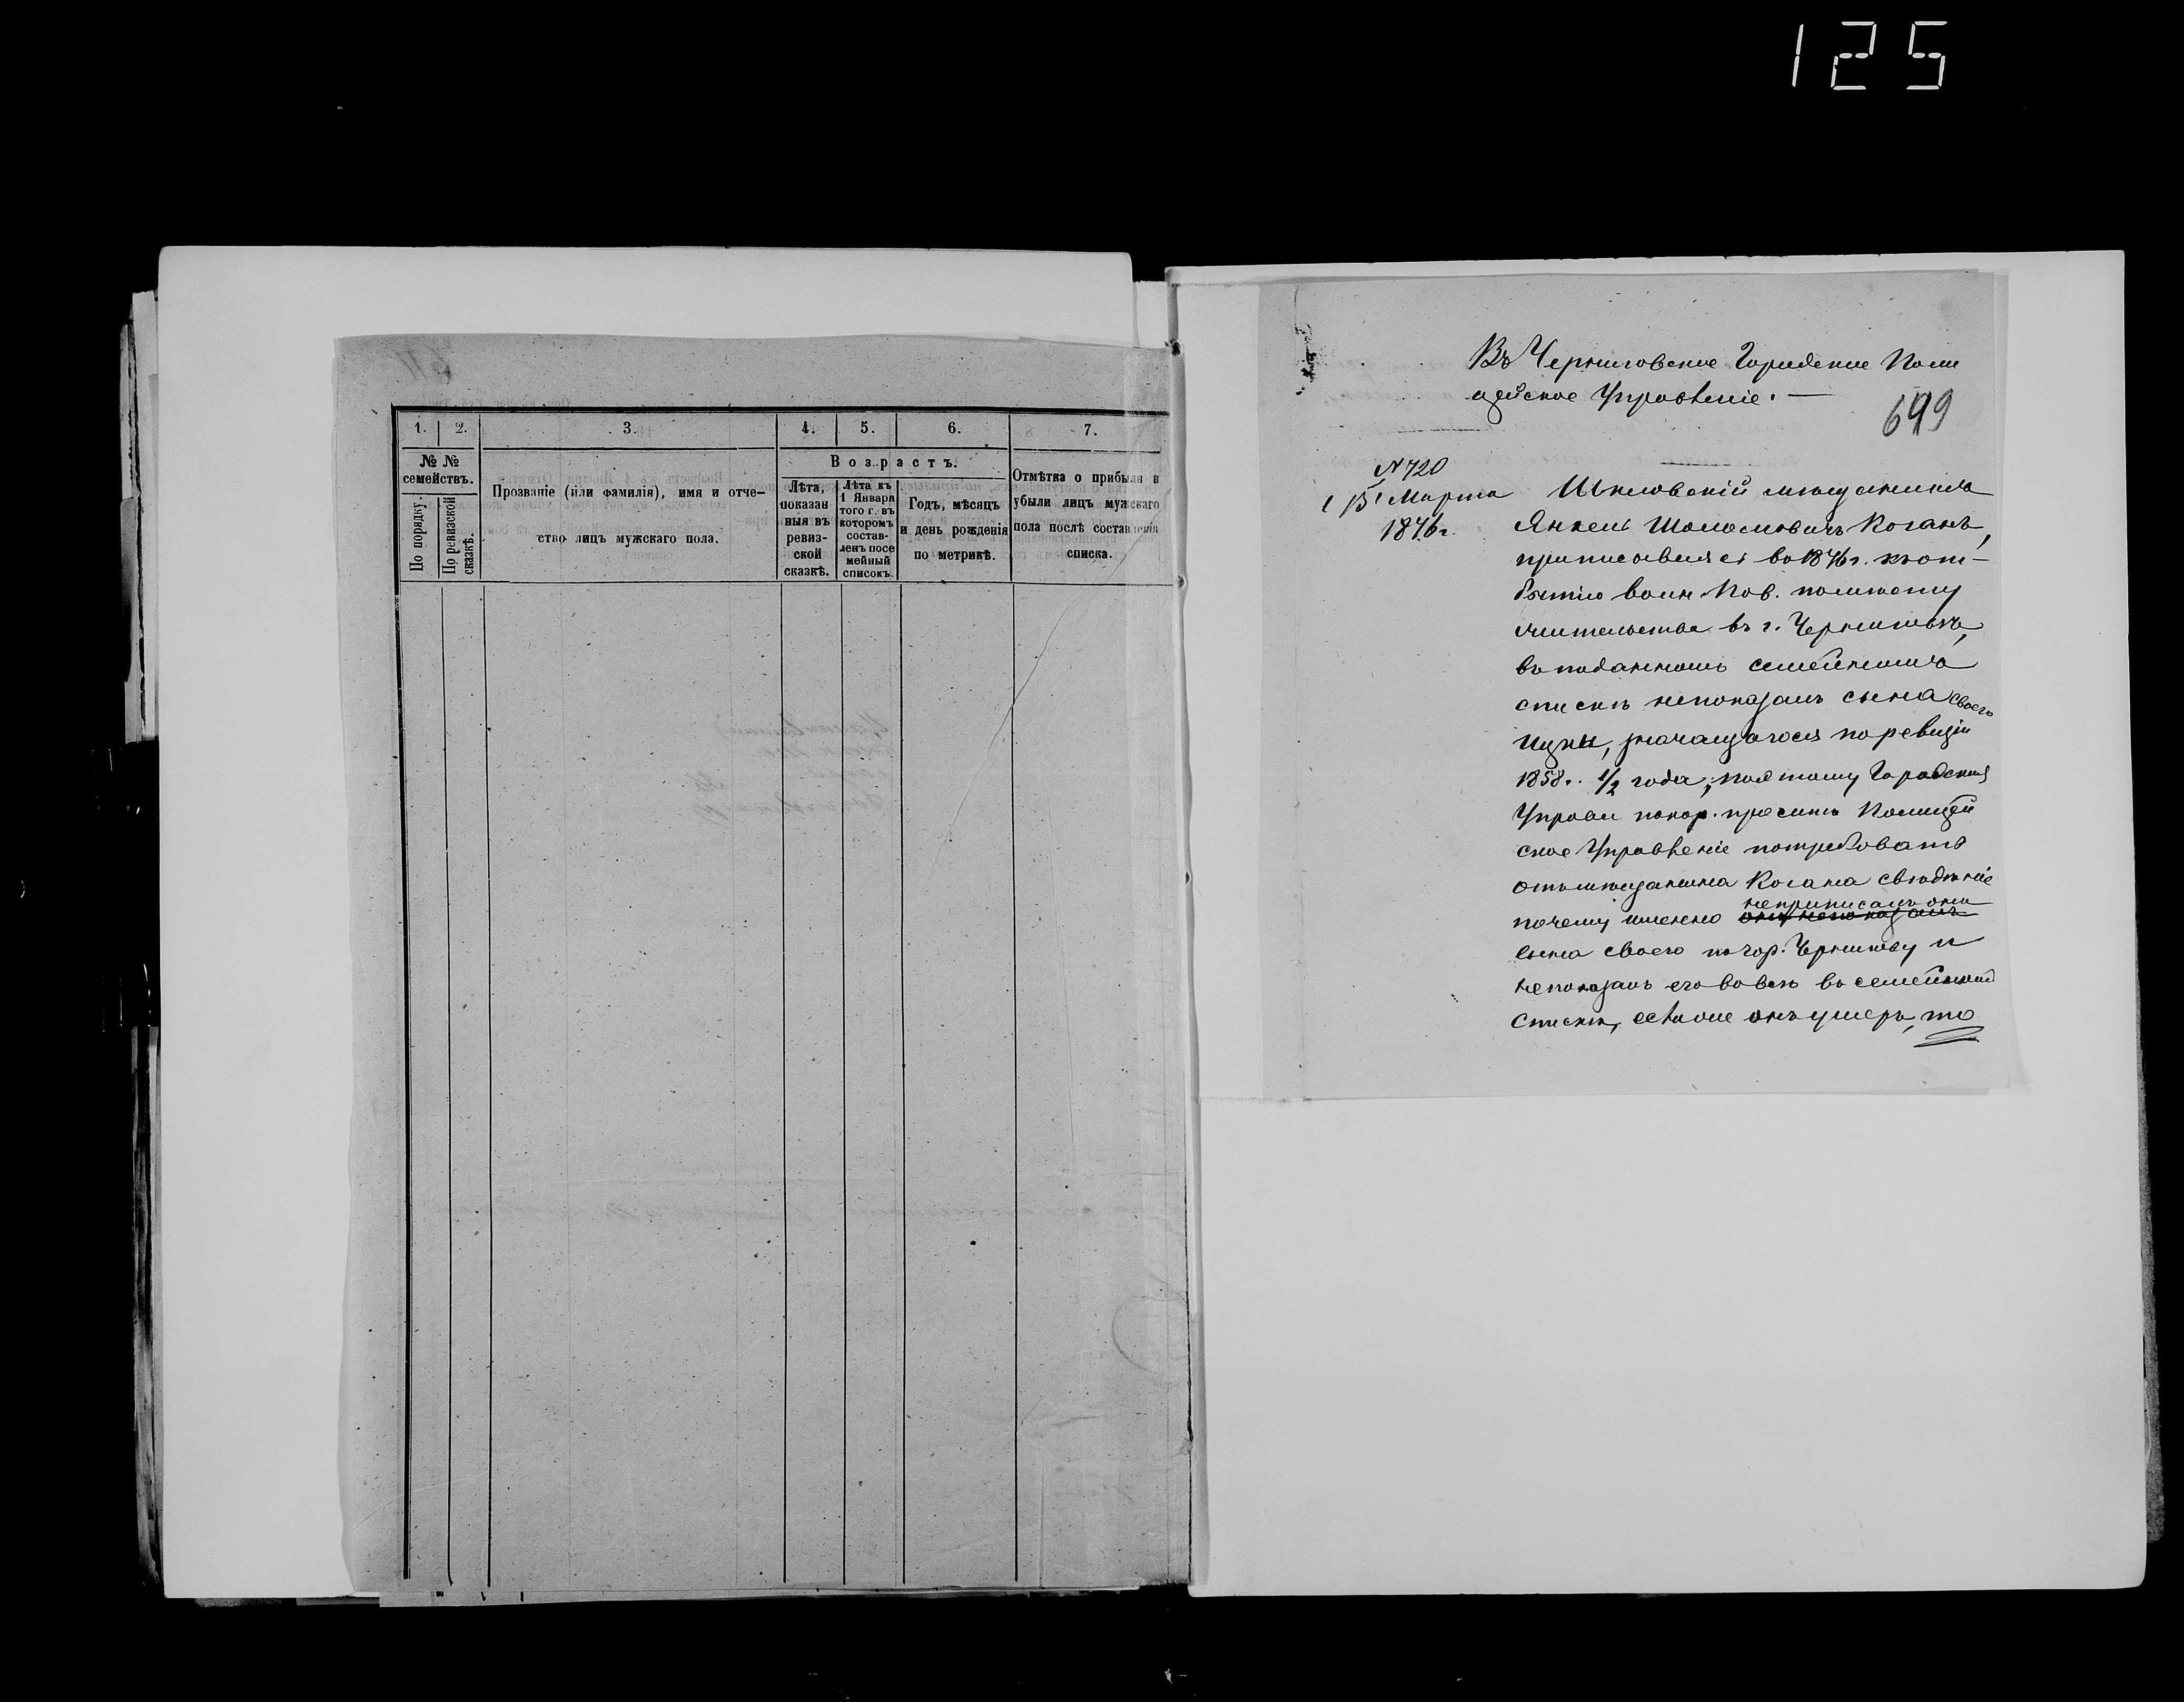 125
1. 2. 3. 4. 5. 6. 7.
№ №
семействъ.
По порядку.
По ревизской
сказкѣ.
Прозваніе (или фамилія), имя и отче-
ство лицъ мужскаго пола.
Возрастъ.
Лѣта,
показан
ныя въ
ревиз-
ской
сказкѣ.
Лѣта къ
1 Января
того г. въ
которомъ
состав-
ленъ посе
мейный
списокъ.
Годъ, мѣсяцъ
и день рожденія
по метрикѣ.
Отмѣтка о прибыли и
убыли лицъ мужскаго
пола послѣ составленія
списка.
Въ Черниговское Городское Поли
цейское Управленіе. —
699
N 720
Марта
1876 г.
Шкловскій мѣщанинъ
Янкель Шоломовичъ Коганъ,
приписавшися въ 1876 г. къ от-
бытію воин. Пов. по мѣсту
жительства въ г. Черниговѣ,
въ поданномъ семейномъ
спискѣ непоказалъ сына своего
Ицки, значащагося по ревизіи
1858 г. 1/2 года, поэтому Городская
Управа покор. проситъ Полицей
ское Управленіе потребовать
отъ мѣщанина Когана свѣдѣніе
неприписалъ онъ
почему именно онъ непоказалъ
сына своего по гор. Чернигову и
непоказалъ его вовсе въ семейномъ
спискѣ, если же онъ умеръ, то